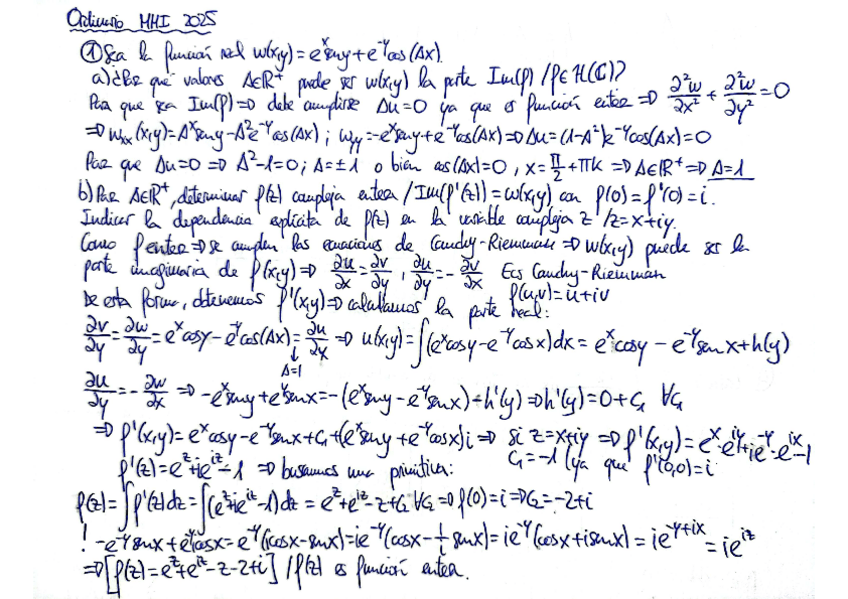 Ordinario MMI 2025
① Sea la función real w(x,y)=e^x seny+e^-y cos(Ax).
a) ¿Por qué valores A∈R⁺ puede ser w(x,y) la parte Im(f) / f∈H(C)?
Para que sea Im(f) ⇒ debe cumplirse Δu=0 ya que es función entera ⇒ ∂²w/∂x² + ∂²w/∂y² = 0
⇒ w_xx(x,y)=e^x seny-A²e^-y cos(Ax) ; w_yy=-e^x seny+e^-y cos(Ax) ⇒ Δu=(1-A²)e^-y cos(Ax)=0
Para que Δu=0 ⇒ A²-1=0; A=±1 o bien cos(Ax)=0, x=π/2+πk ⇒ A∈R⁺ ⇒ A=1
b) Para A∈R⁺, determinar f(z) compleja entera / Im(f'(z))=w(x,y) con f(0)=f'(0)=i.
Indicar la dependencia explícita de f(z) en la variable compleja z / z=x+iy.
Como f entera ⇒ se cumplen las ecuaciones de Cauchy-Riemman ⇒ w(x,y) puede ser la
parte imaginaria de f(x,y) ⇒ ∂u/∂x=∂v/∂y, ∂u/∂y=-∂v/∂x Ecs Cauchy-Riemman
f(u,v)=u+iv
De esta forma, obtenemos f'(x,y) ⇒ calculamos la parte real:
∂v/∂y=∂w/∂y=e^x cosy-e^-y cos(Ax)=∂u/∂x ⇒ u(x,y)=∫(e^x cosy-e^-y cosx)dx=e^x cosy-e^-y senx+h(y)
↓ A=1
∂u/∂y=-∂w/∂x ⇒ -e^x seny+e^-y senx=-(e^x seny-e^-y senx)+h'(y) ⇒ h'(y)=0+C₁ ∀C₁
⇒ f'(x,y)=e^x cosy-e^-y senx+C₁+(e^x seny+e^-y cosx)i ⇒ si z=x+iy ⇒ f'(x,y)=e^x·e^iy+ie^-y·e^ix-1
C₁=-1 (ya que f'(0,0)=i
f'(z)=e^z+ie^iz-1 ⇒ buscamos una primitiva:
f(z)=∫f'(z)dz=∫(e^z+ie^iz-1)dz=e^z+e^iz-z+C₂ ∀C₂ ⇒ f(0)=i ⇒ C₂=-2+i
! -e^-y senx+e^-y icosx=e^-y(icosx-senx)=ie^-y(cosx-1/i senx)=ie^-y(cosx+isenx)=ie^-y+ix=ie^iz
⇒ [f(z)=e^z+e^iz-z-2+i] / f(z) es función entera.